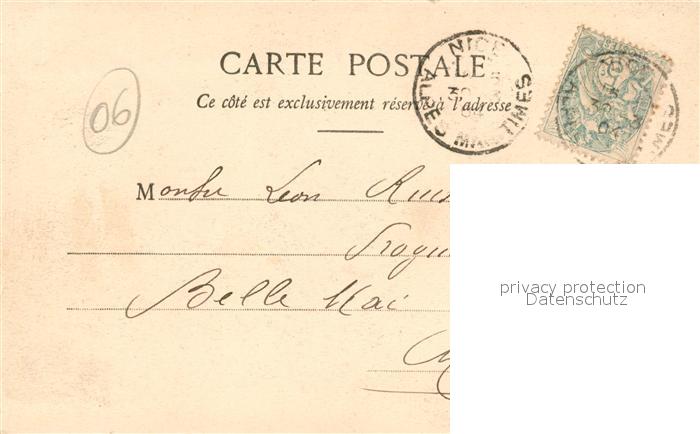 CARTE POSTALE
Ce côté est exclusivement réservé à l'adresse
NICE
ALPES MARITIMES
06
M onsieur Léon
Belle Mai
privacy protection
Datenschutz